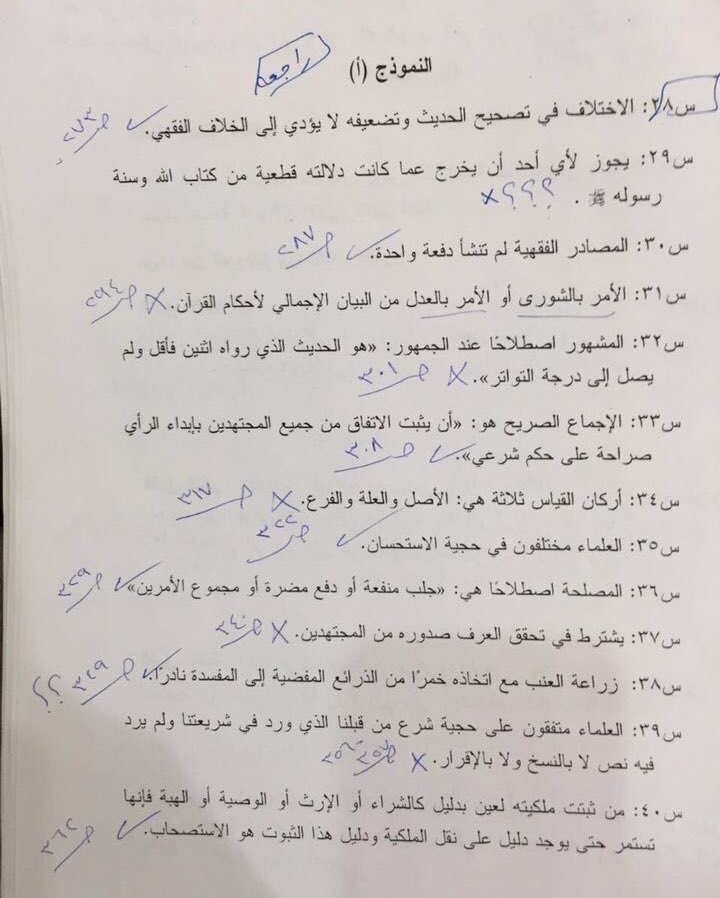 راجعه
النموذج (أ)
س٢٨: الاختلاف في تصحيح الحديث وتضعيفه لا يؤدي إلى الخلاف الفقهي. ✓ ص٢٧٣
س٢٩: يجوز لأي أحد أن يخرج عما كانت دلالته قطعية من كتاب الله وسنة
رسوله ﷺ . ؟؟؟ ×
س٣٠: المصادر الفقهية لم تنشأ دفعة واحدة. ✓ ص٢٨٧
س٣١: الأمر بالشورى أو الأمر بالعدل من البيان الإجمالي لأحكام القرآن. × ص٢٩٤
س٣٢: المشهور اصطلاحًا عند الجمهور: «هو الحديث الذي رواه اثنين فأقل ولم
يصل إلى درجة التواتر». × ص٣٠١
س٣٣: الإجماع الصريح هو: «أن يثبت الاتفاق من جميع المجتهدين بإبداء الرأي
صراحة على حكم شرعي». ✓ ص٣٠٨
س٣٤: أركان القياس ثلاثة هي: الأصل والعلة والفرع. × ص٣١٧
س٣٥: العلماء مختلفون في حجية الاستحسان. ✓ ص٣٢٢
س٣٦: المصلحة اصطلاحًا هي: «جلب منفعة أو دفع مضرة أو مجموع الأمرين» ✓ ص٣٢٩
س٣٧: يشترط في تحقق العرف صدوره من المجتهدين. × ص٣٤٠
س٣٨: زراعة العنب مع اتخاذه خمرًا من الذرائع المفضية إلى المفسدة نادرًا. ✓ ص٣٤٩ ؟؟
س٣٩: العلماء متفقون على حجية شرع من قبلنا الذي ورد في شريعتنا ولم يرد
فيه نص لا بالنسخ ولا بالإقرار. × ص٣٥٧ ٣٥٦
س٤٠: من ثبتت ملكيته لعين بدليل كالشراء أو الإرث أو الوصية أو الهبة فإنها
تستمر حتى يوجد دليل على نقل الملكية ودليل هذا الثبوت هو الاستصحاب. ✓ ص٣٦٢